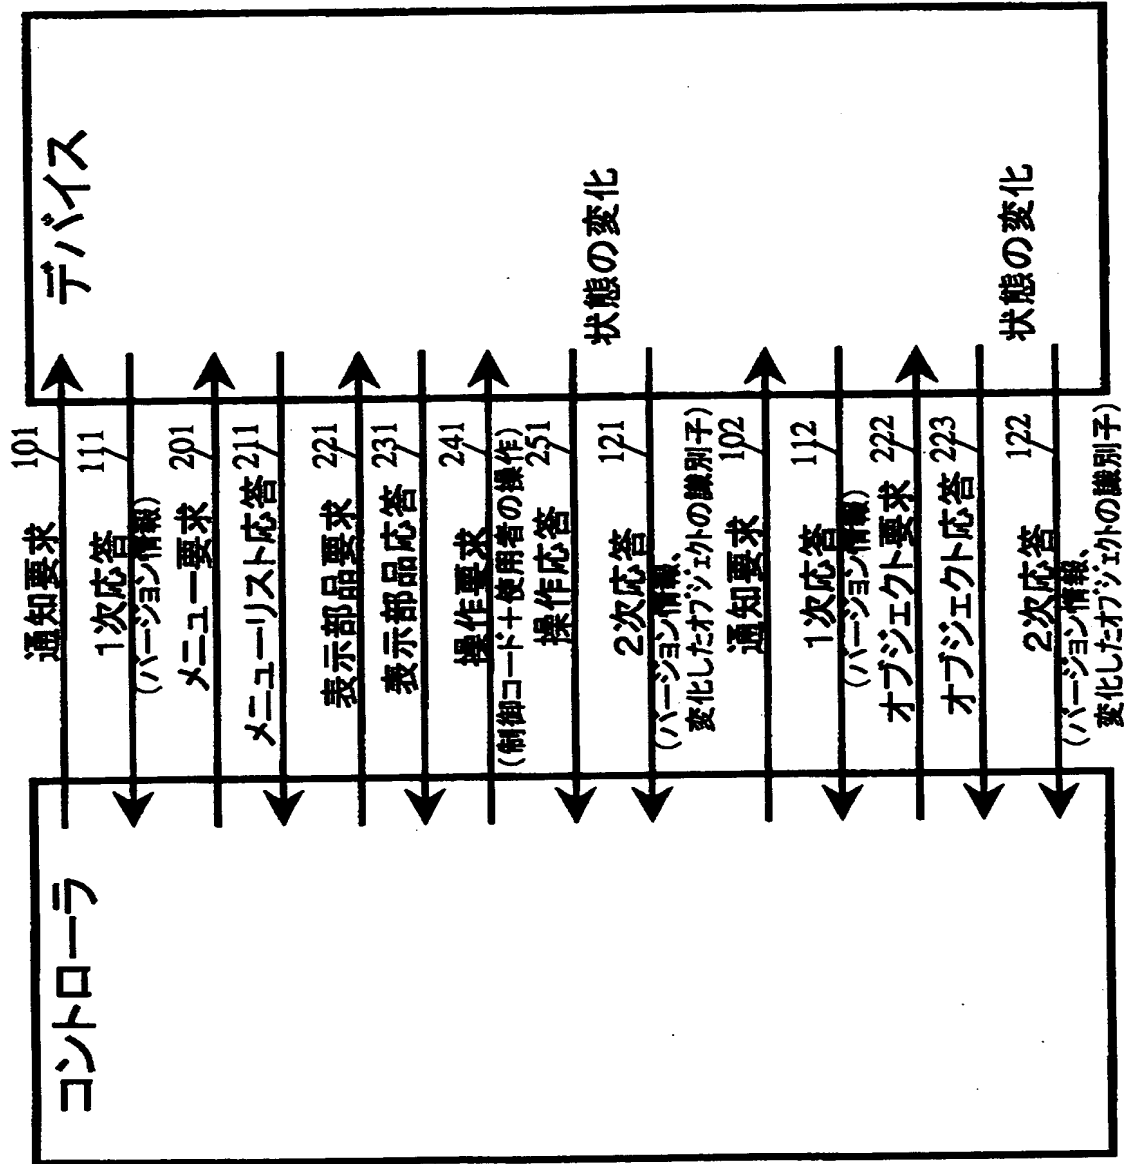 コントローラ
デバイス
通知要求
101
1次応答
111
(バージョン情報)
メニュー要求
201
メニューリスト応答
211
表示部品要求
221
表示部品応答
231
操作要求
241
(制御コード+使用者の操作)
操作応答
251
状態の変化
2次応答
121
(バージョン情報、
変化したオブジェクトの識別子)
通知要求
102
1次応答
112
(バージョン情報)
オブジェクト要求
222
オブジェクト応答
223
状態の変化
2次応答
122
(バージョン情報、
変化したオブジェクトの識別子)